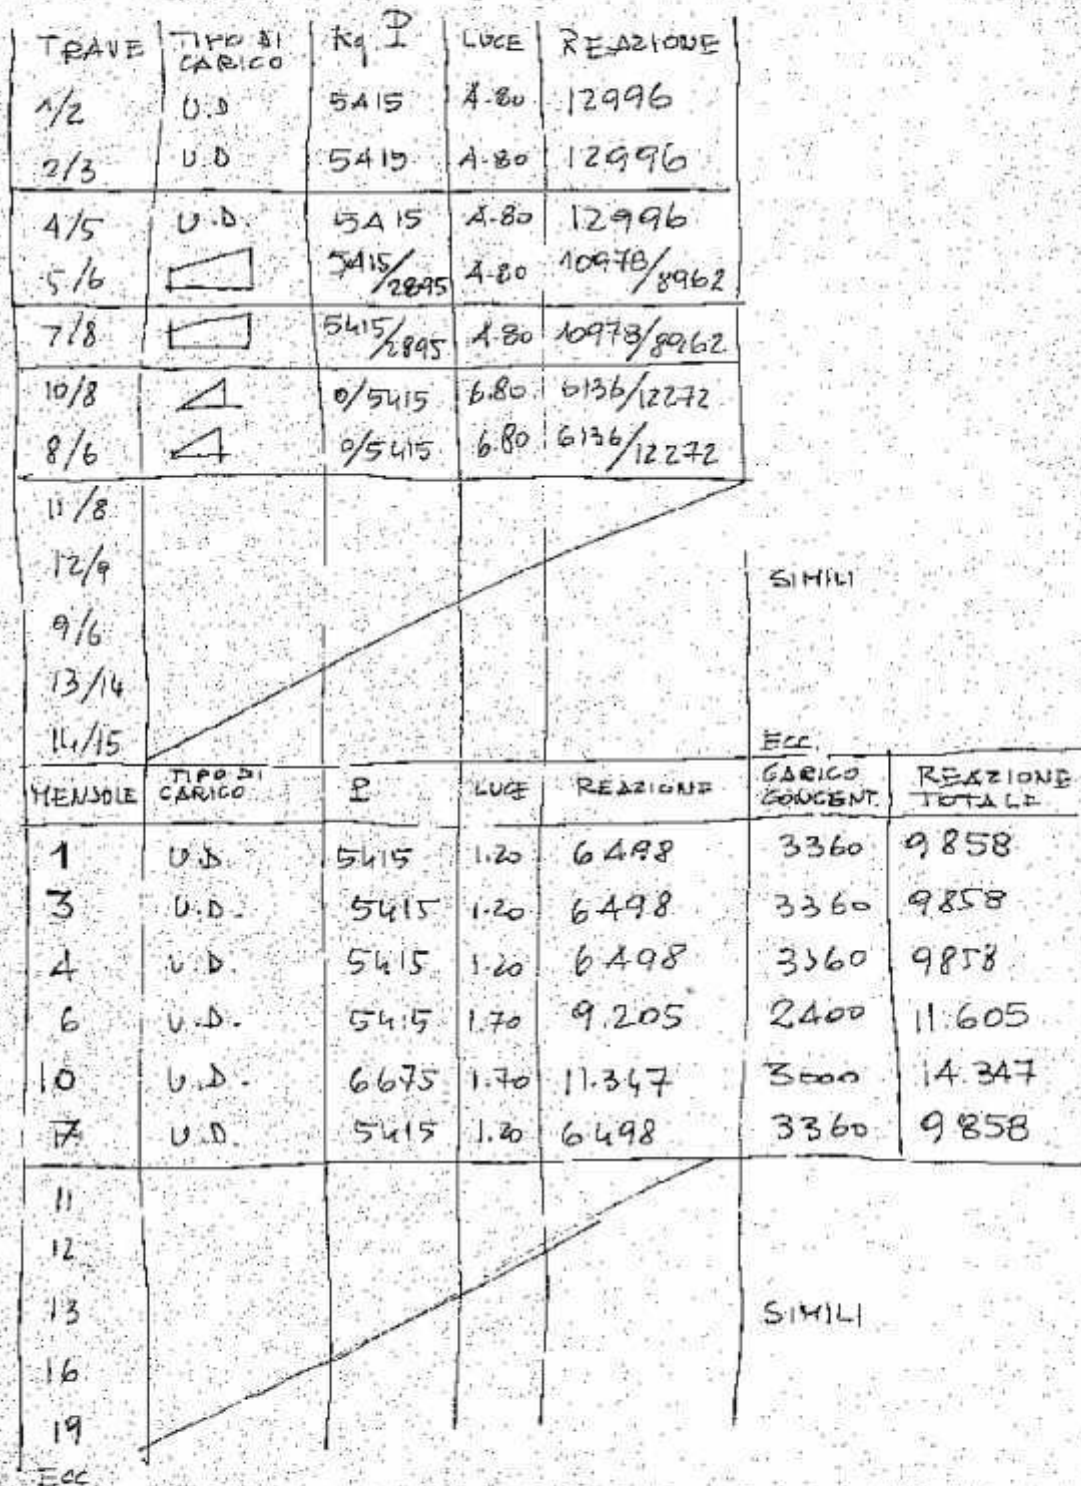 TRAVE TIPO DI CARICO Kg P LUCE REAZIONE
1/2 U.D 5415 4.80 12996
2/3 U.D 5415 4.80 12996
4/5 U.D. 5415 4.80 12996
5/6 5415/2895 4.80 10978/8962
7/8 5415/2895 4.80 10978/8962
10/8 0/5415 6.80 6136/12272
8/6 0/5415 6.80 6136/12272
11/8
12/9 SIMILI
9/6
13/14
14/15 ECC.
MENSOLE TIPO DI CARICO P LUCE REAZIONE CARICO CONCENT. REAZIONE TOTALE
1 U.D. 5415 1.20 6498 3360 9858
3 U.D. 5415 1.20 6498 3360 9858
4 U.D. 5415 1.20 6498 3360 9858
6 U.D. 5415 1.70 9.205 2400 11.605
10 U.D. 6675 1.70 11.347 3000 14.347
7 U.D. 5415 1.20 6498 3360 9858
11
12
13 SIMILI
16
19
Ecc